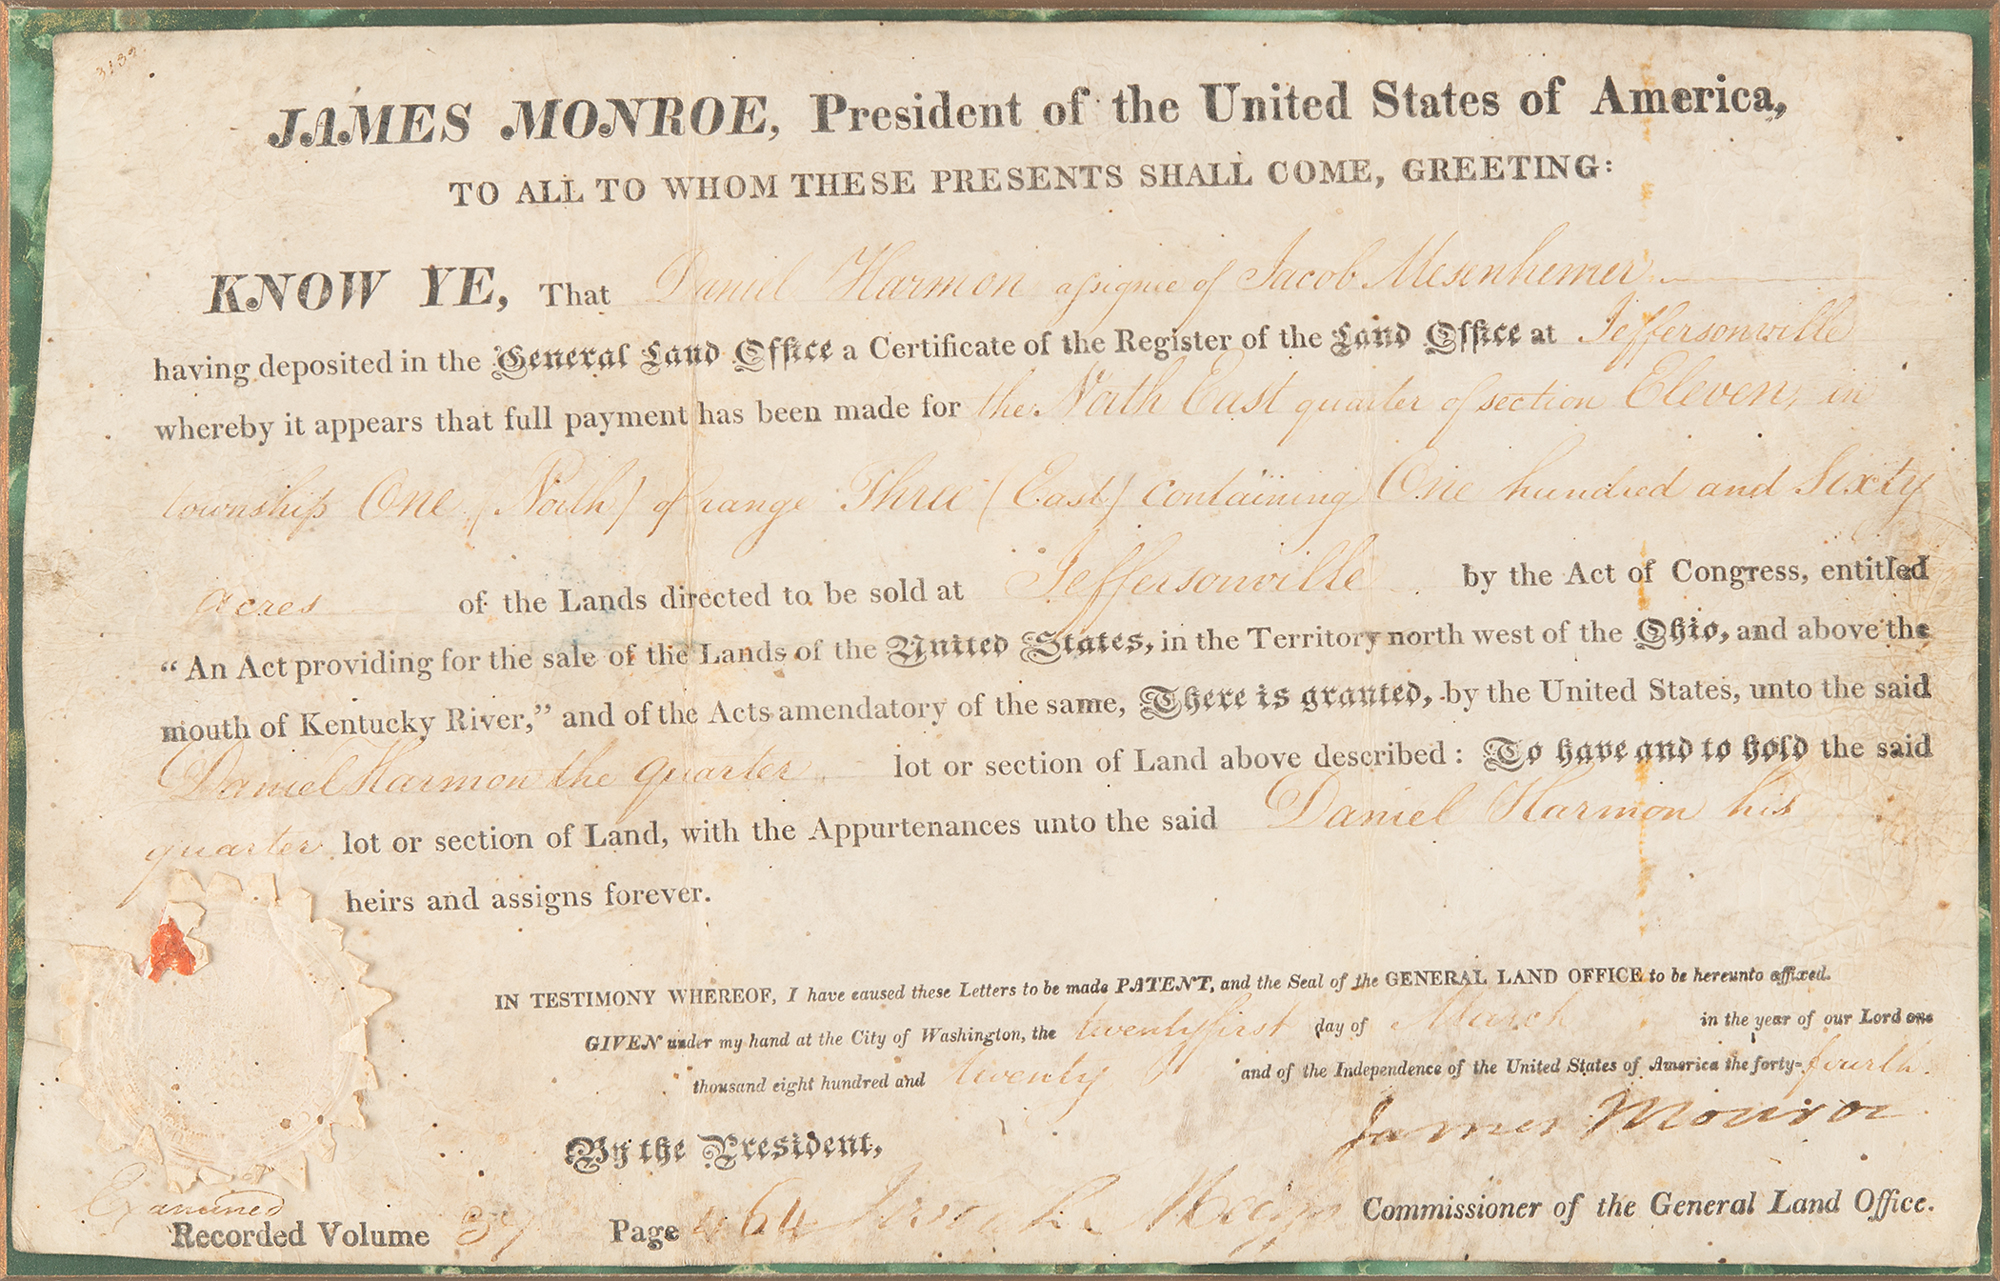 3132
JAMES MONROE, President of the United States of America,
TO ALL TO WHOM THESE PRESENTS SHALL COME, GREETING:
KNOW YE, That Daniel Harmon assignee of Jacob Mesenhemer
having deposited in the General Land Office a Certificate of the Register of the Land Office at Jeffersonville
whereby it appears that full payment has been made for the North East quarter of section Eleven, in
township One (North) of range Three (East) containing One hundred and Sixty
acres of the Lands directed to be sold at Jeffersonville by the Act of Congress, entitled
“An Act providing for the sale of the Lands of the United States, in the Territory north west of the Ohio, and above the
mouth of Kentucky River,” and of the Acts amendatory of the same, There is granted, by the United States, unto the said
Daniel Harmon the quarter lot or section of Land above described: To have and to hold the said
quarter lot or section of Land, with the Appurtenances unto the said Daniel Harmon his
heirs and assigns forever.
IN TESTIMONY WHEREOF, I have caused these Letters to be made PATENT, and the Seal of the GENERAL LAND OFFICE to be hereunto affixed.
GIVEN under my hand at the City of Washington, the twentyfirst day of March in the year of our Lord one
thousand eight hundred and twenty and of the Independence of the United States of America the forty-fourth.
James Monroe
By the President,
Examined
Recorded Volume 37 Page 464 Josiah Meigs Commissioner of the General Land Office.